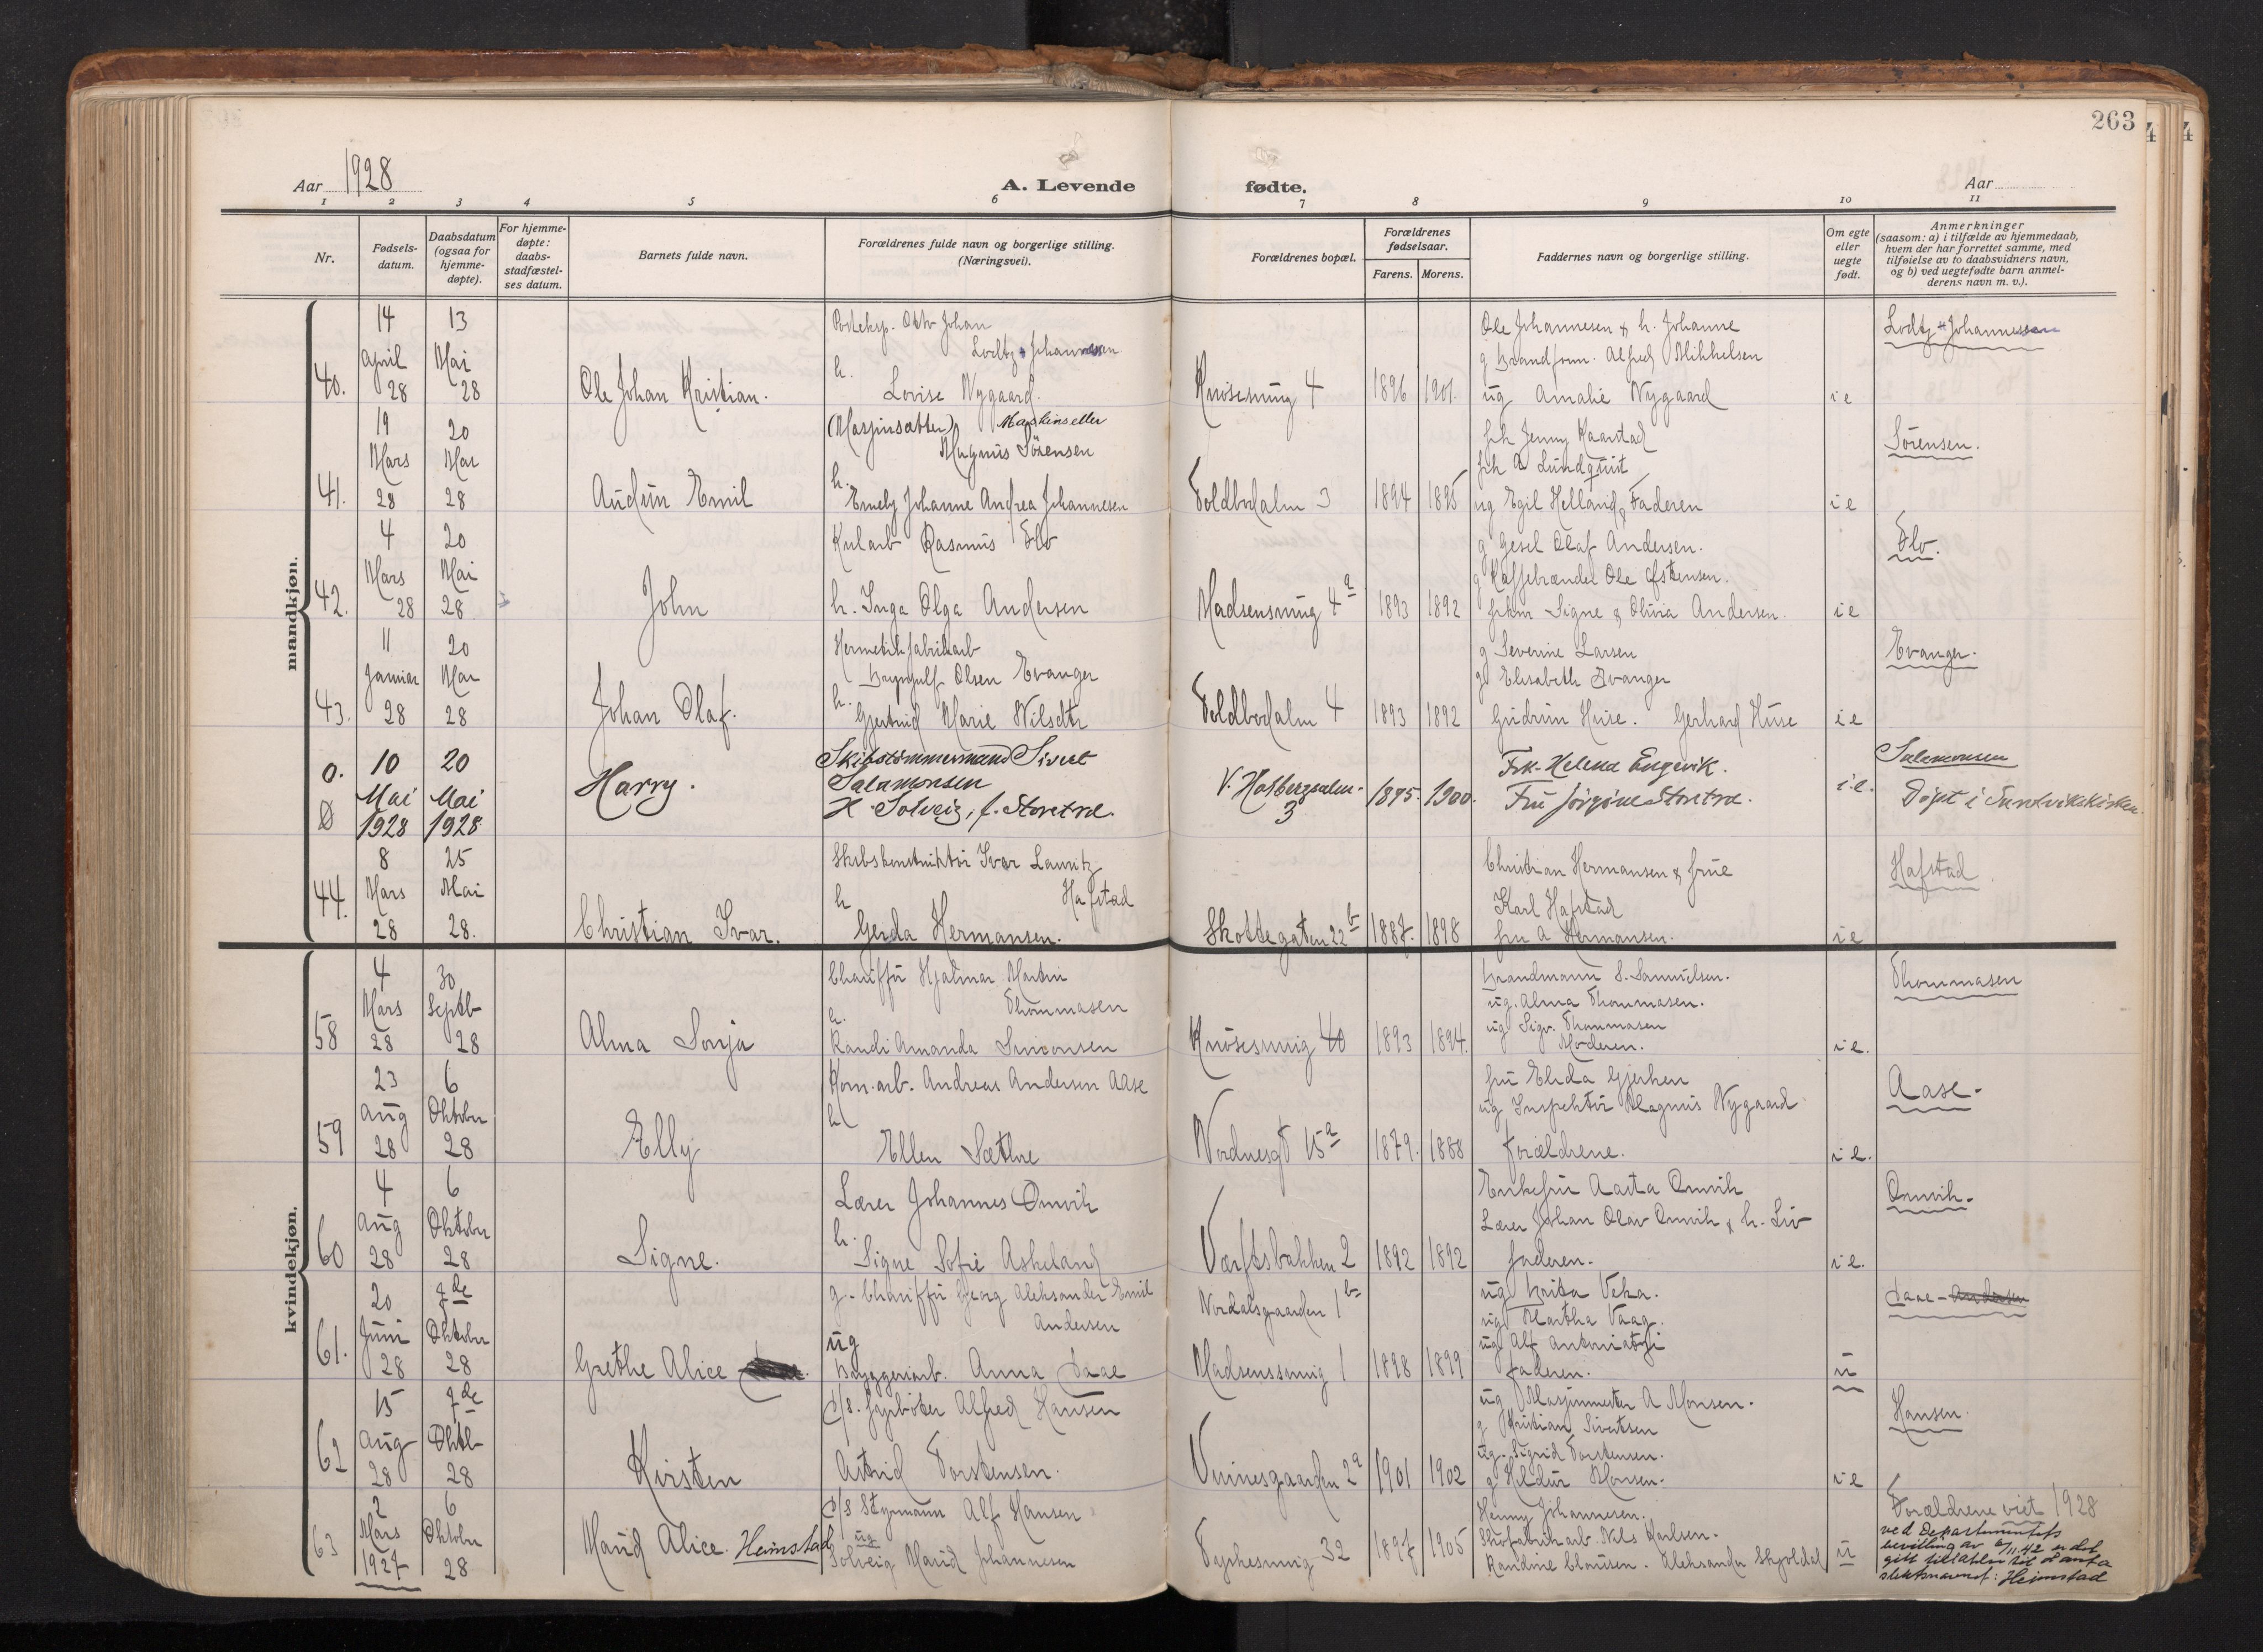 263
Aar 1928
A. Levende fødte.
Aar
1 2 3 4 5 6 7 8 9 10 11
Nr.
Fødselsdatum.
Daabsdatum (ogsaa for hjemmedøpte).
For hjemmedøpte: daabsstadfæstelses datum.
Barnets fulde navn.
Forældrenes fulde navn og borgerlige stilling. (Næringsvei).
Forældrenes bopæl.
Forældrenes fødselsaar.
Farens. Morens.
Faddernes navn og borgerlige stilling.
Om egte eller uegte født.
Anmerkninger
(saasom: a) i tilfælde av hjemmedaab,
hvem der har forrettet samme, med
tilføielse av to daabsvidners navn,
og b) ved uegtefødte barn anmelderens navn m. v.).
mandkjøn.
40.
14 April 28
13 Mai 28
Ole Johan Kristian.
Johan
Lodtz Johannessen
h. Lovise Nygaard.
Knøsesmug 4
1896 1901.
Ole Johannesen & h. Johanne
g Alfred Mikkelsen
ug Amalie Nygaard
i e
Lodtz Johannessen
41.
19 Mars 28
20 Mai 28
Audun Emil
(Masjinsætter) Maskinsetter
Magnus Sörensen
h. Emely Johanne Andrea Johannesen
Toldbodalm 3
1894 1895
frk Jenny Kaarstad
frk A Lundquist
ug Egil Helland & Faderen
i e
Sörensen.
42.
4 Mars 28
20 Mai 28
John
Kularb Rasmus Flo
h. Inga Olga Andersen
Madsensmug 4a
1893 1892
g Olaf Andersen.
g Kaffebrænder Ole
frkn Signe & Olivia Andersen.
i e
Flo.
43.
11 Januar 28
20 Mai 28
Johan Olaf.
Hermetikfabrikarb
Olsen Evanger
h. Gjertrud Marie
Toldbodalm 4
1893 1892
g Severine Larsen
g Elisabeth Evanger
Gudrun Huse. Gerhard Huse
i e
Evanger.
0.
10 Mai 1928
20 Mai 1928
Harry.
Skibstömmermand Sivert
Salamonsen
H. Solveig, f. Storetvd.
V. Holbergsalm. 3
1895. 1900.
Frk. Helena Engevik.
Fru Jörgine Storetvd.
i.e.
Salamonsen
Döpt i Sandvikskirken
44.
8 Mars 28
25 Mai 28.
Christian Ivar.
Skibskonstruktör Ivar Lauritz
Hafstad
h Gerda Hermansen.
Skottegaten 22b
1887. 1898
Christian Hermansen & frue
Karl Hafstad
fru A Hermansen.
i e
Hafstad
kvindekjøn.
58
4 Mars 28
30 Septb 28
Alma Sonja
Chauffür Hjalmar Martin
Thommasen
h. Randi Amanda Simonsen
Knösesmug 40
1893 1894.
Brandmann S. Samuelsen.
ug. Alma Thommasen.
ug Sigv. Thommasen
Moderen.
i e.
Thommasen
59
23 Aug 28
6 Oktober 28
Elly
Kom.arb. Andreas Andersen Aase
h Ellen Sæthre
Nordnesgt 15a
1879. 1888
fru Elida Gjerken
ug Inspektör Magnus Nygaard
forældrene.
i e.
Aase.
60
4 Aug 28
6 Oktober 28
Signe.
Lærer Johannes Omvik
h. Signe Sofie Askeland
Verftsbakken 2
1892 1892
Enkefru Aasta Omvik
Lærer Johan Olav Omvik & h. Liv
faderen.
i e.
Omvik.
61.
20 Juni 28
7de Oktober 28
Grethe Alice
g. Chauffür Georg Aleksander Emil
Andersen
ug Anna Daae
Nordalsgaarden 1b
Madsenssmug 1
1898 1899
ug Brita Veka.
ug Martha Vaag.
ug Alf
faderen.
u
Daae - Andersen
62
15 Aug 28
7de Oktb 28
Kirsten
D/S. fyrböter Alfred Hansen
Astrid Torstensen.
1901 1902
ug Masjinmester A Monsen.
g Kristian Sivertsen
ug. Sigrid Torstensen.
g Hildur Monsen.
i e
Hansen.
63
2 Mars 1927
6 Oktober 28
Maud Alice. Heimstad
D/S Styrmann Alf Hansen
ug Solveig Maud Johannesen
32
1897 1905
Henny Johannesen.
Skofabrikarb. Nils Karlsen.
Randine Clausen. Aleksander Skjoldal
u
Forældrene viet 1928
ved Departementets
bevilling av 6/11.42 er det
gitt tillatelse til å anta
slektsnavnet: Heimstad